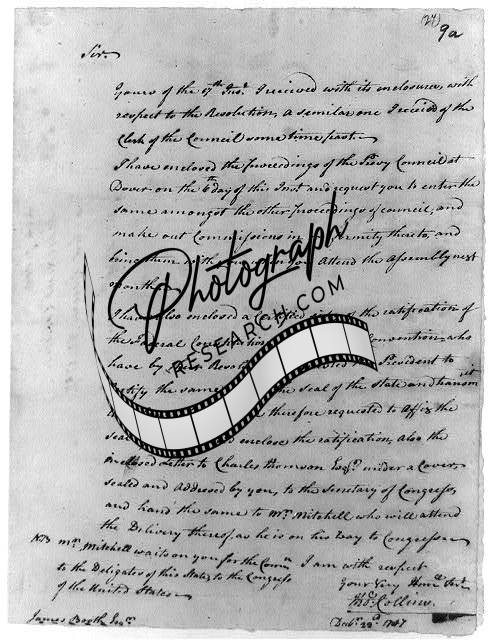 (27)
9a
Sir.
Yours of the 17th Inst. I received with its enclosures, with
respect to the Resolution, a similar one I received of the
Clerk of the Council some time past.
I have enclosed the Proceedings of the Privy Council at
Dover on the 6th day of this Inst and request you to enter the
same amongst the other Proceedings of council, and
make out Commissions in thereto, and
bring them with you attend the Assembly next
month
I have also enclosed a of the ratification of
the Federal Convention who
have by their President to
the same the seal of the State and transm
it
therefore requested to Affix the
seal enclose the ratification, also the
enclosed Letter to Charles Thomson Esqr. under a Cover,
sealed and Addressed by you, to the Secretary of Congress,
and hand the same to Mr. Mitchell who will attend
the Delivery thereof, as he is on his Way to Congress
NB Mr. Mitchell waits on you for the Comn I am with respect
to the Deligates of this State, to the Congress
of the United States
Your Very Humle Servt
Thos. Collins.
James Booth Esqr.
Decbr. 22d 1787
Photograph
RESEARCH.COM